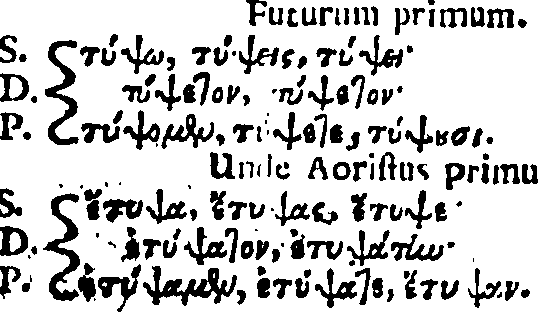 Futurum primum.
S. τύψω, τύψεις, τύψει·
D. τύψετον, τύψετον·
P. τύψομεν, τύψετε, τύψουσι.
Unde Aoristus primu
S. ἔτυψα, ἔτυψας, ἔτυψε·
D. ἐτύψατον, ἐτυψάτην·
P. ἐτύψαμεν, ἐτύψατε, ἔτυψαν.